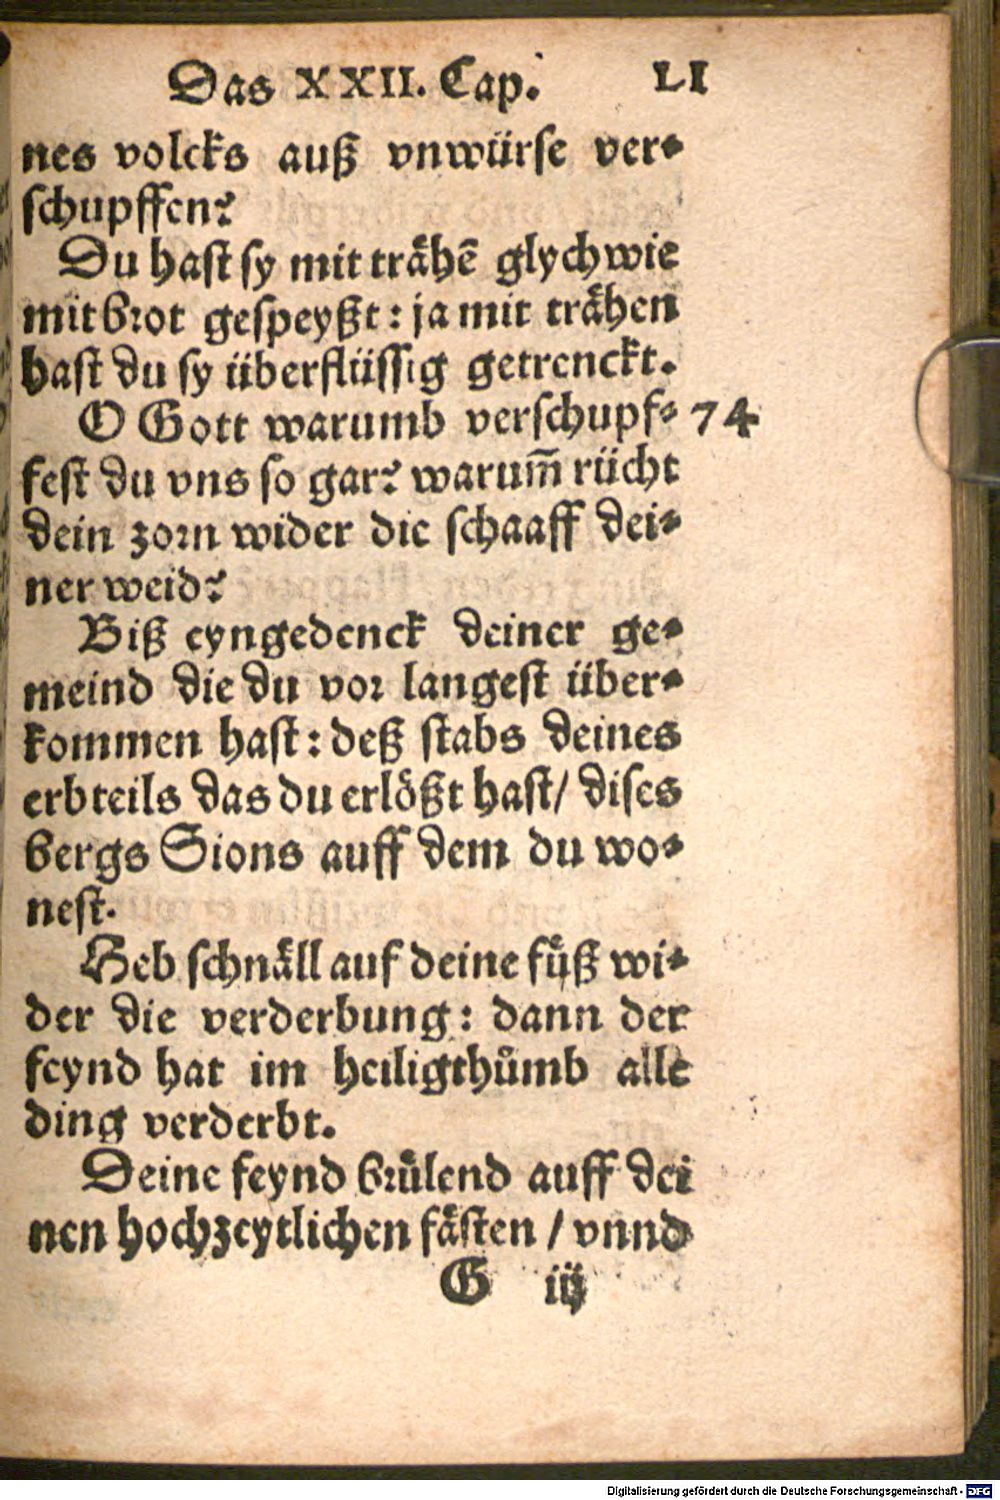 Das XXII. Cap. LI
nes volcks auß vnwürse ver⸗
schupffen?
Du hast sy mit trähē glych wie
mit brot gespeyßt: ja mit trähen
hast du sy überflüssig getrenckt.
O Gott warumb verschupf⸗ 74
fest du vns so gar? warum̄ rücht
dein zorn wider die schaaff dei⸗
ner weid?
Biß eyngedenck deiner ge⸗
meind die du vor langest über⸗
kommen hast: deß stabs deines
erbteils das du erlößt hast/ dises
bergs Sions auff dem du wo⸗
nest.
Heb schnäll auf deine fuͤß wi⸗
der die verderbung: dann der
feynd hat im heiligthuͦmb alle
ding verderbt.
Deine feynd bruͤlend auff dei
nen hochzeytlichen fästen / vnnd
G iij
Digitalisierung gefördert durch die Deutsche Forschungsgemeinschaft - DFG